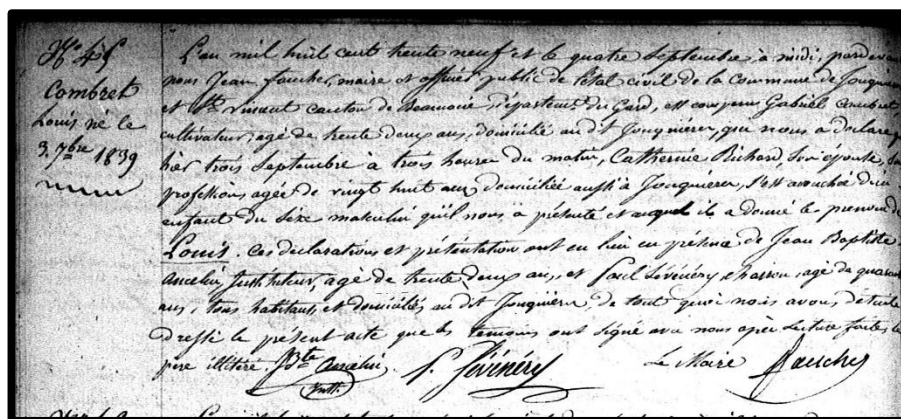 N° 45
Combret
Louis né le
3. 7bre 1839
L'an mil huit cents trente neuf et le quatre Septembre à midi, pardevant
nous Jean fauche, maire et officier public de l'état civil de la Commune de Jonquières
et St vincent canton de Beaucaire, département du Gard, est comparu Gabriel Combret
cultivateur, agé de trente deux ans, domicilié au dit Jonquières, qui nous a declaré
hier trois Septembre à trois heures du matin, Catherine Richard, son épouse,
profession, agée de vingt huit ans domiciliée aussi à Jonquières, s'est accouchée d'un
enfant du sexe masculin qu'il nous a présenté et auquel il a donné le prenom de
Louis. ces declarations et présentation ont eu lieu en présence de Jean Baptiste
Ancelin, Instituteur, agé de trente deux ans, et Paul Sévénéry, agé de quarante
ans, tous habitants et domiciliés au dit Jonquières, de tout quoi nous avons de suite
dressé le présent acte que les temoins ont signé avec nous après Lecture faite, le
pere illitéré. Jn Bte Ancelin P. Sévénéry Le Maire Fauche
Instr